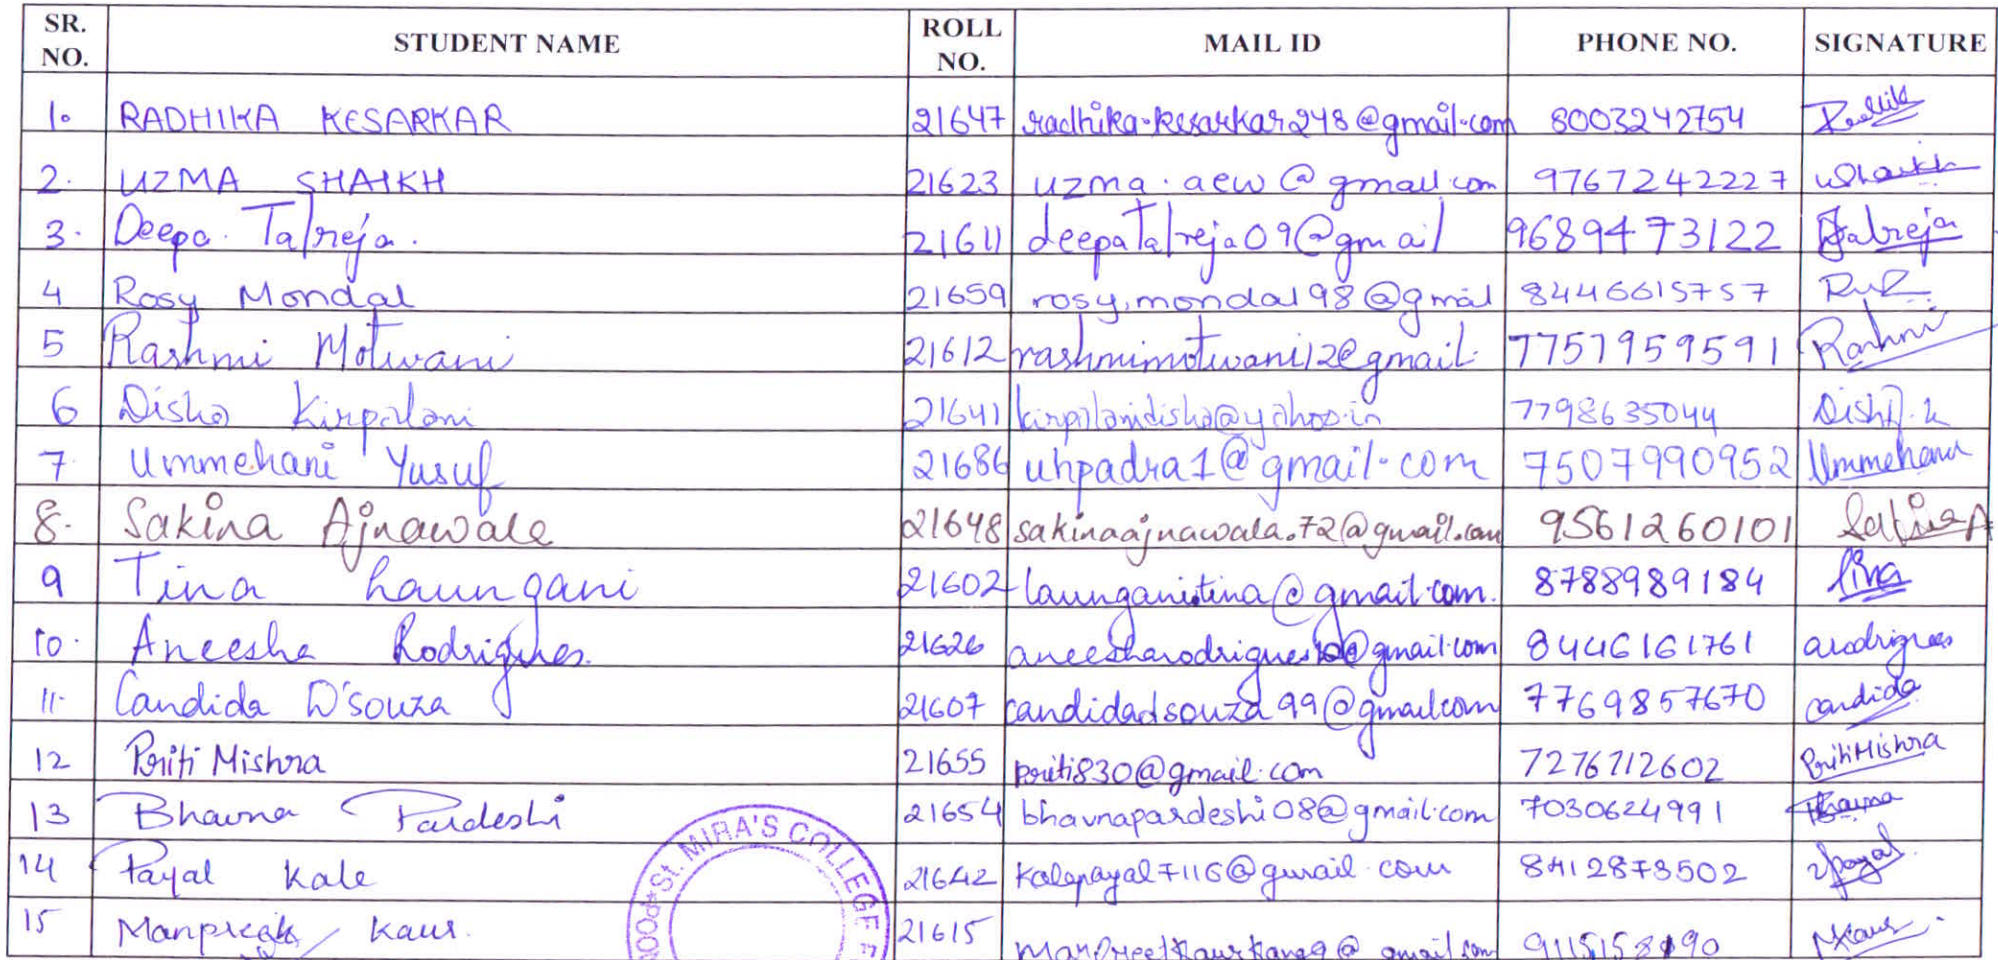 SR. NO. STUDENT NAME ROLL NO. MAIL ID PHONE NO. SIGNATURE
1. RADHIKA KESARKAR 21647 radhika.kesarkar248@gmail.com 8003242754
2. UZMA SHAIKH 21623 uzma.aew@gmail.com 9767242227 UShaikh
3. Deepa Talreja. 21611 deepatalreja09@gmail 9689473122 Talreja
4 Rosy Mondal 21659 rosy.mondal98@gmail 8446615757
5 Rashmi Motwani 21612 rashmimotwani12@gmail. 7757959591 Rashmi
6 Disha Kirpalani 21641 kirpalanidisha@yahoo.in 7798635044 Disha.k
7 Ummehani Yusuf 21686 uhpadra1@gmail.com 7507990952 Ummehani
8. Sakina Ajnawala 21648 sakinaajnawala.72@gmail.com 9561260101 Sakina A
9 Tina Laungani 21602 launganitina@gmail.com. 8788989184 Tina
10. Aneesha Rodrigues. 21626 8446161761 arodrigues
11. Candida D'souza 21607 candidadsouza99@gmail.com 7769857670 Candida
12 Priti Mishra 21655 priti830@gmail.com 7276712602 Priti Mishra
13 Bhavna Pardeshi 21654 bhavnapardeshi08@gmail.com 7030624991 Bhavna
14 Payal Kale 21642 kalepayal7116@gmail.com 8412873502 Payal
15 Manpreet Kaur. 21615 MKaur
St. MIRA'S COLLEGE F
POON